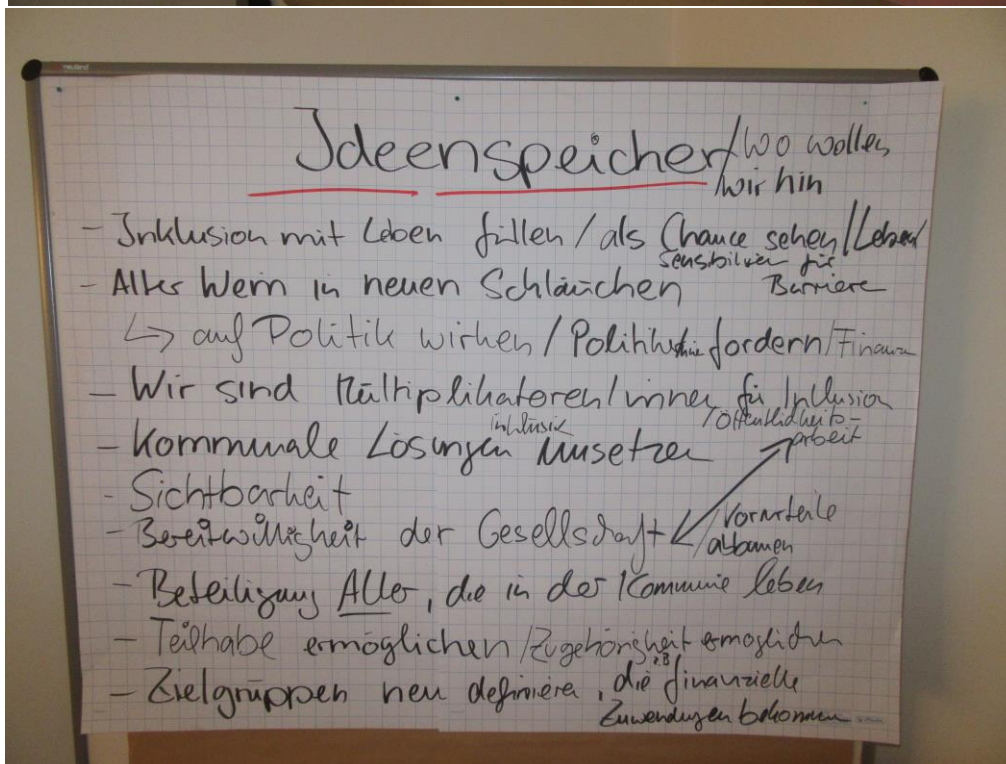 neuland
Ideenspeicher / Wo wollen
wir hin
- Inklusion mit Leben füllen / als Chance sehen / Leben
sensibilisieren für
Barriere
- Alter Wein in neuen Schläuchen
↳ auf Politik wirken / Politik fordern / Finanzen
- Wir sind Multiplikatoren/innen für Inklusion
/ Öffentlichkeits-
arbeit
inklusiv
- Kommunale Lösungen umsetzen
- Sichtbarkeit
- Bereitwilligkeit der Gesellschaft
/ Vorurteile
abbauen
- Beteiligung Aller, die in der Kommune leben
- Teilhabe ermöglichen / Zugehörigkeit ermöglichen
- Zielgruppen neu definieren, die z.B. finanzielle
Zuwendungen bekommen